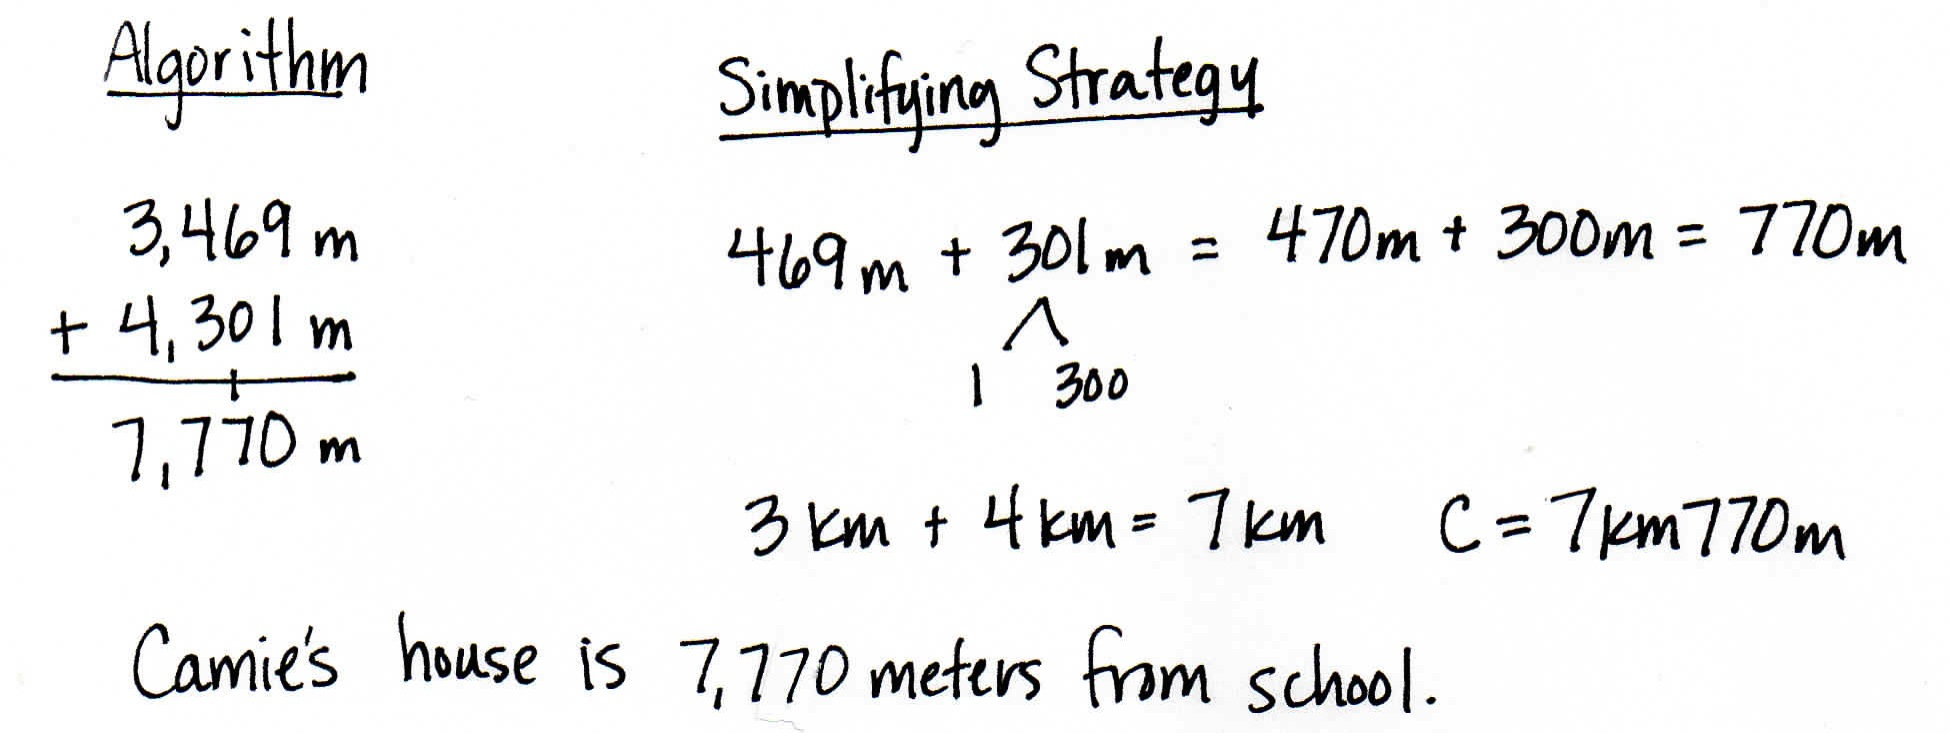 Algorithm
3,469 m
+ 4,301 m
1
7,770 m
Simplifying Strategy
469 m + 301 m = 470 m + 300 m = 770 m
1 300
3 km + 4 km = 7 km C = 7 km 770 m
Camie's house is 7,770 meters from school.